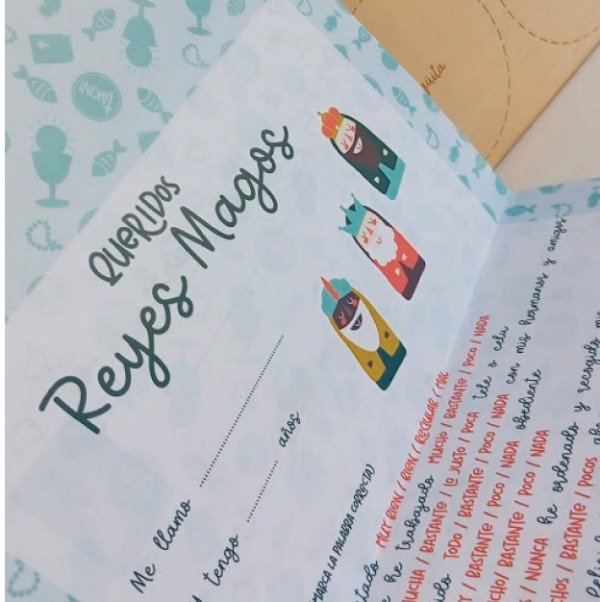 QUERIDOS
Reyes Magos
Me llamo
tengo años
MARCA LA PALABRA CORRECTA
MUY BIEN / BIEN / REGULAR / MAL
he trabajado MUCHO / BASTANTE / POCO / NADA
MUCHA / BASTANTE / LO JUSTO / POCA tele o cel
TODO / BASTANTE / POCO / NADA con mis hermanos y amigos
BASTANTE / POCO / NADA obediente
BASTANTE / POCO / NADA
NUNCA he ordenado y recogido
BASTANTES / POCOS
TAKINI